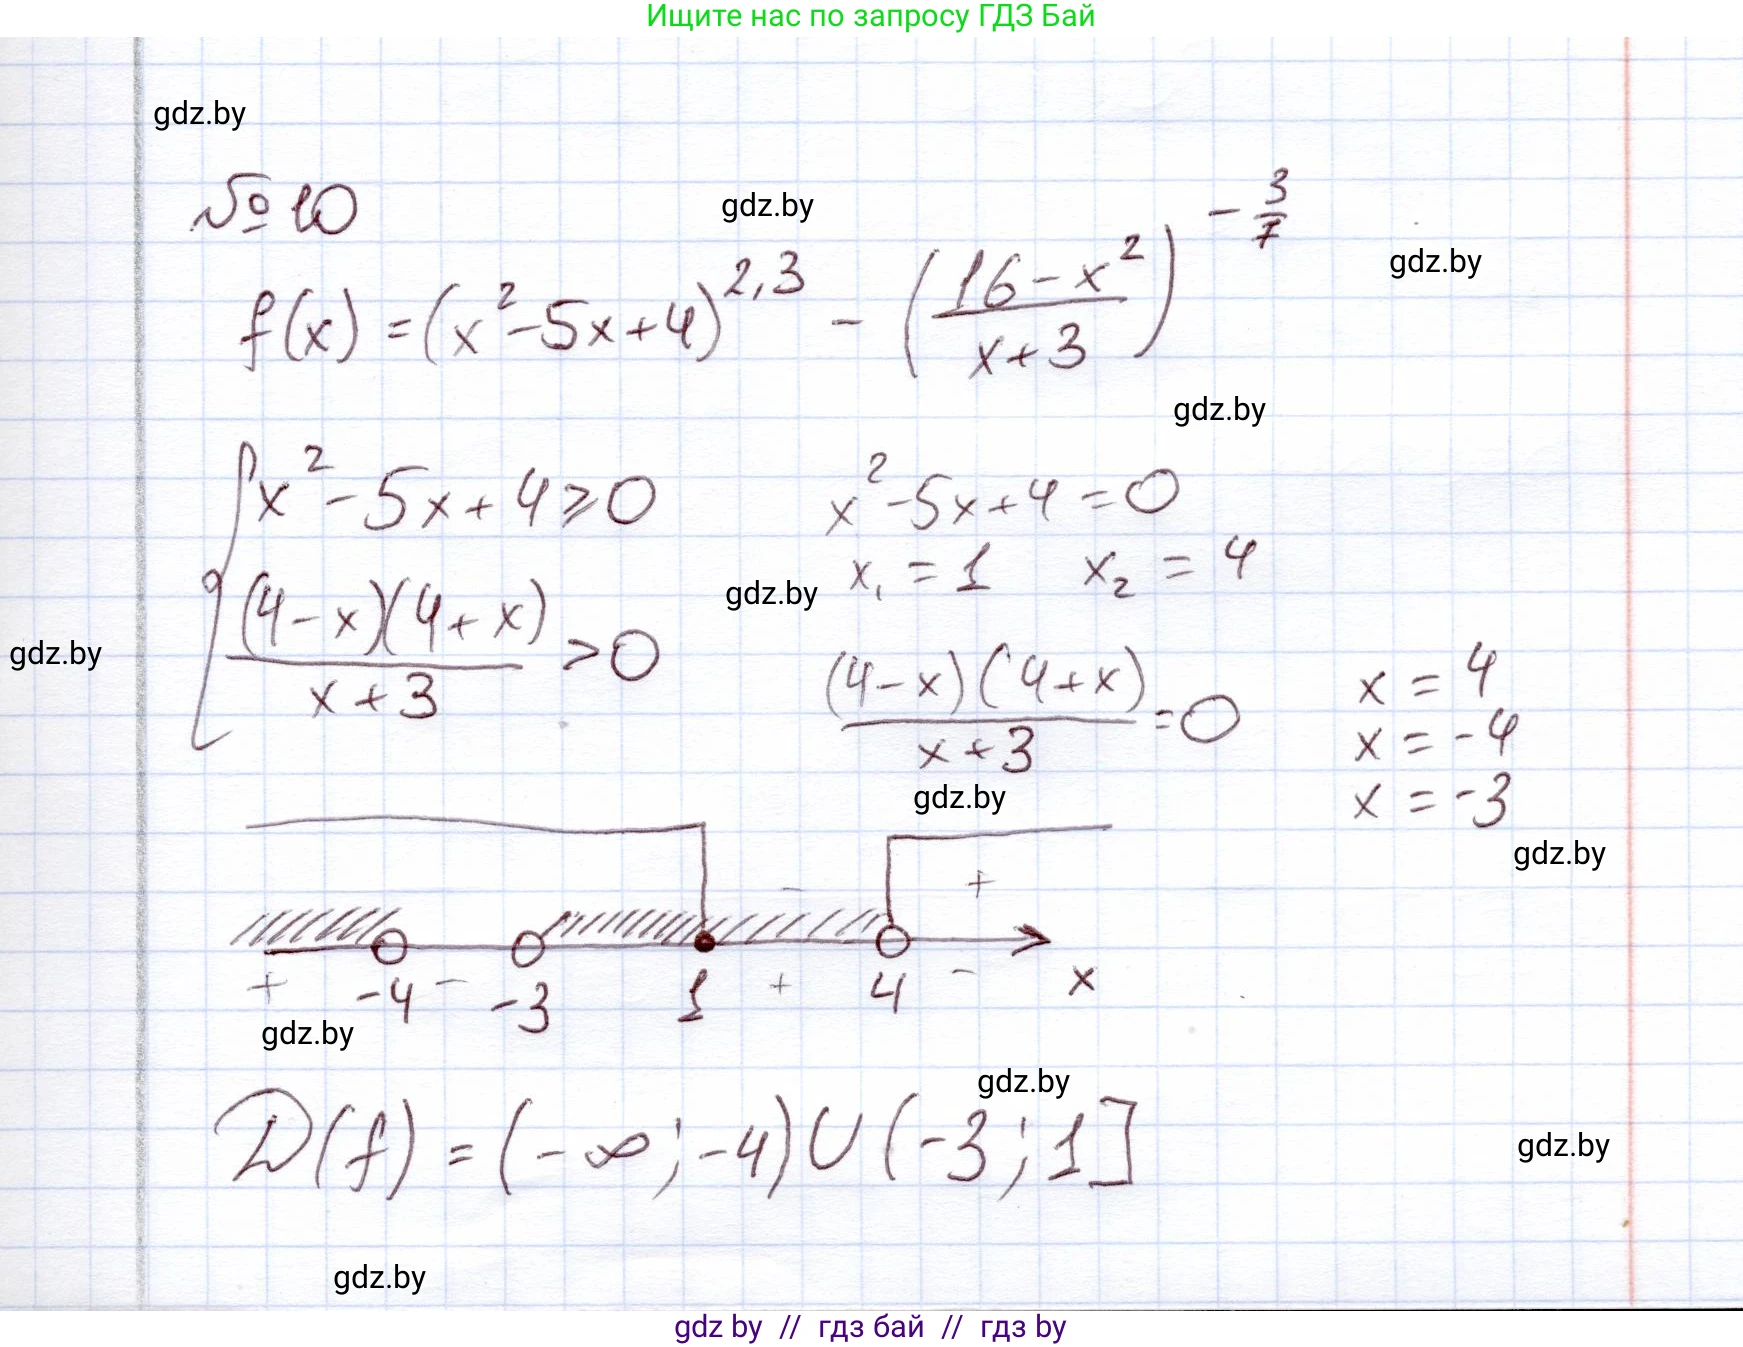 Ищите нас по запросу ГДЗ Бай
gdz.by
№ 10
gdz.by
gdz.by
f(x) = (x² - 5x + 4)^{2,3} - ((16 - x²)/(x + 3))^{-3/7}
gdz.by
{ x² - 5x + 4 ⩾ 0
x² - 5x + 4 = 0
x₁ = 1 x₂ = 4
gdz.by
(4 - x)(4 + x)/(x + 3) > 0
gdz.by
(4 - x)(4 + x)/(x + 3) = 0
x = 4
x = -4
x = -3
gdz.by
gdz.by
- +
+ -4 - -3 1 + 4 - x
gdz.by
gdz.by
D(f) = (-∞; -4) ∪ (-3; 1]
gdz.by
gdz.by
gdz by // гдз бай // гдз by